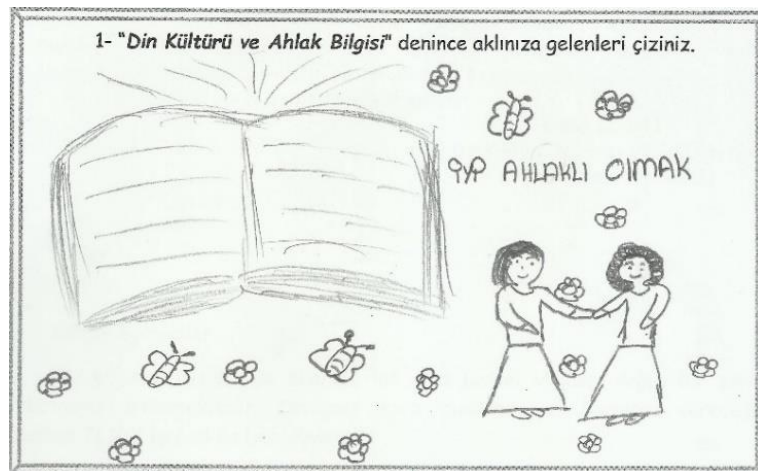 1- "Din Kültürü ve Ahlak Bilgisi" denince aklınıza gelenleri çiziniz.
İYİ AHLAKLI OlMAK